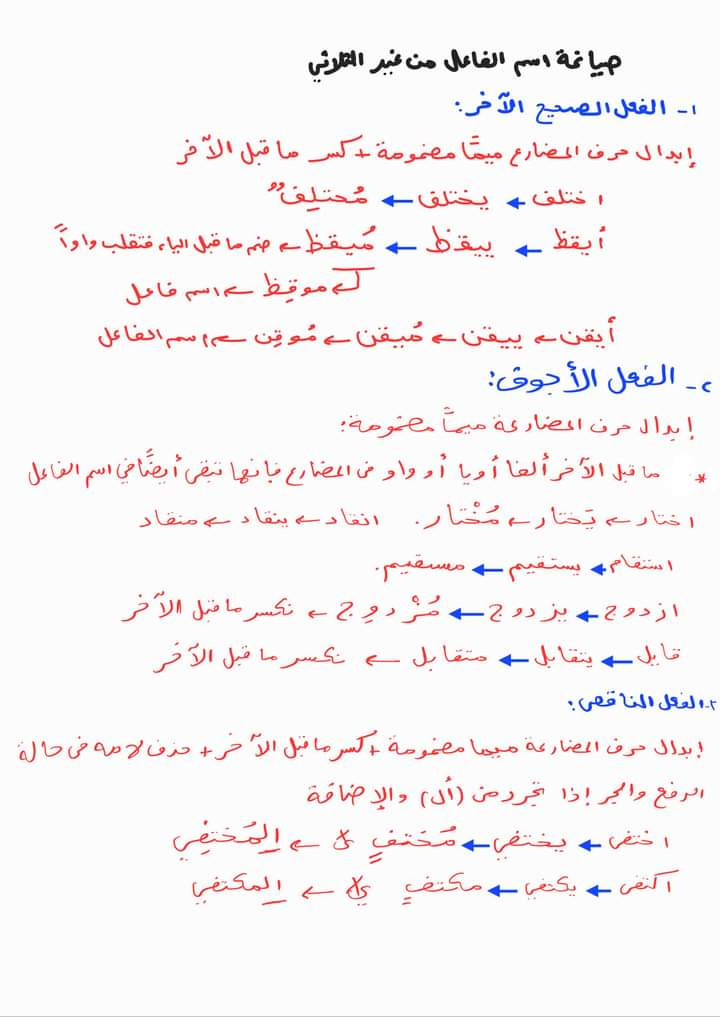 صياغة اسم الفاعل من غير الثلاثي
١- الفعل الصحيح الآخر:
إبدال حرف المضارع ميمًا مضمومة + كسر ما قبل الآخر
اختلف ← يختلف ← مُختلِفٌ
أيقظ ← ييقظ ← مُيقظ ← ضم ما قبل الياء فتقلب واواً
← موقِظ ← اسم فاعل
أيقن ← ييقن ← مُيقن ← مُوقِن ← اسم الفاعل
٢- الفعل الأجوف:
إبدال حرف المضارعة ميمًا مضمومة:
* ما قبل الآخر ألفا أو يا أو واو في المضارع فإنها تبقى أيضًا في اسم الفاعل
اختار ← يَختار ← مُخْتار. انقاد ← ينقاد ← منقاد
استقام ← يستقيم ← مستقيم.
ازدوج ← يزدوج ← مُزْدوِج ← نكسر ما قبل الآخر
قابل ← يتقابل ← متقابل ← نكسر ما قبل الآخر
٢- الفعل الناقص:
إبدال حرف المضارعة ميما مضمومة + كسر ما قبل الآخر + حذف لامه في حالة
الرفع والجر إذا تجرد من (أل) والإضافة
اختفى ← يختفي ← مُختفٍ ← المُختفِي
اكتفى ← يكتفي ← مكتفٍ ← المكتفي